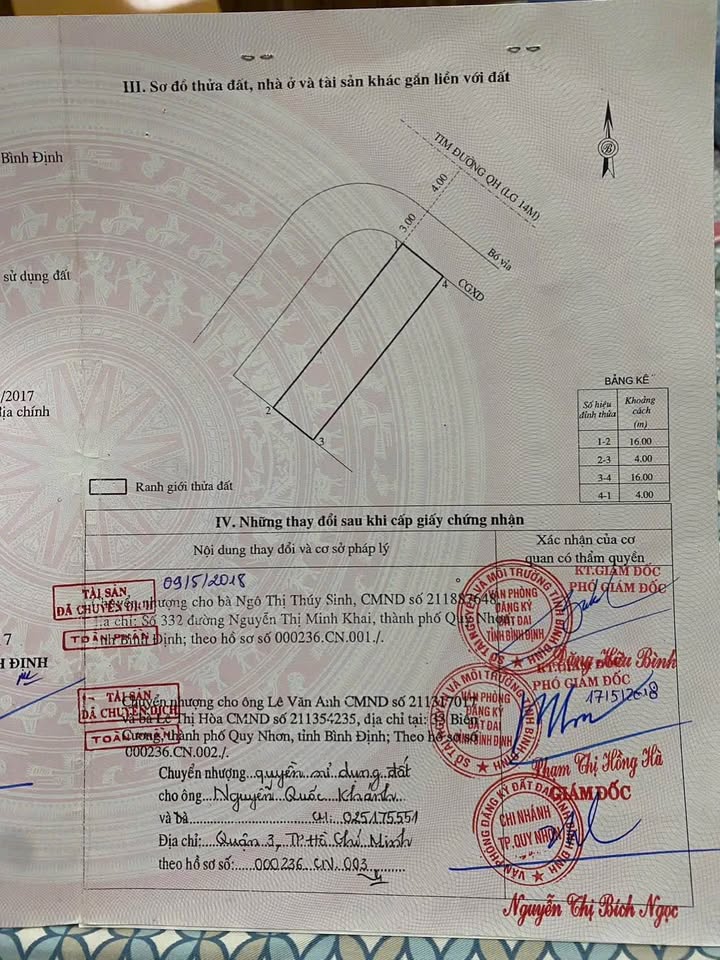 III. Sơ đồ thửa đất, nhà ở và tài sản khác gắn liền với đất
Bình Định
sử dụng đất
/2017
địa chính
7
H ĐỊNH
B
TIM ĐƯỜNG QH (LG 14M)
4.00
3.00
Bó vỉa
CGXD
1
4
2
3
BẢNG KÊ
Số hiệu đỉnh thửa Khoảng cách (m)
1-2 16.00
2-3 4.00
3-4 16.00
4-1 4.00
Ranh giới thửa đất
IV. Những thay đổi sau khi cấp giấy chứng nhận
Nội dung thay đổi và cơ sở pháp lý
Xác nhận của cơ
quan có thẩm quyền
TÀI SẢN
ĐÃ CHUYỂN DỊCH
TOÀN PHẦN
09/5/2018
nhượng cho bà Ngô Thị Thúy Sinh, CMND số 211887648
chỉ: Số 332 đường Nguyễn Thị Minh Khai, thành phố Quy Nhơn
Bình Định; theo hồ sơ số 000236.CN.001./.
KT.GIÁM ĐỐC
PHÓ GIÁM ĐỐC
VĂN PHÒNG
ĐĂNG KÝ
ĐẤT ĐAI
TỈNH BÌNH ĐỊNH
SỞ TÀI NGUYÊN VÀ MÔI TRƯỜNG TỈNH BÌNH ĐỊNH
Đặng Hữu Bình
TÀI SẢN
ĐÃ CHUYỂN DỊCH
TOÀN PHẦN
Chuyển nhượng cho ông Lê Văn Anh CMND số 211317017
và bà Lê Thị Hòa CMND số 211354235, địa chỉ tại: 33 Biên
Cương, thành phố Quy Nhơn, tỉnh Bình Định; Theo hồ sơ số
000236.CN.002./.
KT.GIÁM ĐỐC
PHÓ GIÁM ĐỐC
17/5/2018
VĂN PHÒNG
ĐĂNG KÝ
ĐẤT ĐAI
TỈNH BÌNH ĐỊNH
SỞ TÀI NGUYÊN VÀ MÔI TRƯỜNG TỈNH BÌNH ĐỊNH
Phạm Thị Hồng Hà
Chuyển nhượng quyền sử dụng đất
cho ông Nguyễn Quốc Khánh
và bà CM: 025175551
Địa chỉ: Quận 3, TP Hồ Chí Minh
theo hồ sơ số: 000236.CN.003
GIÁM ĐỐC
VĂN PHÒNG ĐĂNG KÝ ĐẤT ĐAI TỈNH BÌNH ĐỊNH
CHI NHÁNH
TP.QUY NHƠN
Nguyễn Thị Bích Ngọc